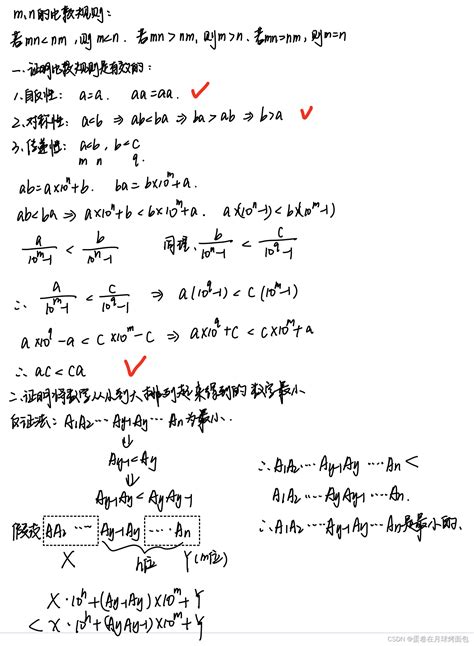 m、n的比較规则：
若mn<nm，则m<n. 若mn>nm，则m>n. 若mn=nm，则m=n
一.证明比較规则是有效的：
1.自反性： a=a. aa=aa.
2.对称性： a<b ⇒ ab<ba ⇒ ba>ab ⇒ b>a
3.传递性： a<b, b<c
m n q.
ab=a×10ⁿ+b. ba=b×10ᵐ+a.
ab<ba ⇒ a×10ⁿ+b<b×10ᵐ+a. a×(10ⁿ-1)<b(10ᵐ-1)
a/(10ᵐ-1) < b/(10ⁿ-1) 同理, b/(10ⁿ-1) < c/(10^q-1)
∴ a/(10ᵐ-1) < c/(10^q-1) ⇒ a(10^q-1)<c(10ᵐ-1)
a×10^q-a<c×10ᵐ-c ⇒ a×10^q+c<c×10ᵐ+a
∴ ac<ca
二.证明将数字从小到大排列起来得到的数字最小
反证法： A1A2…Ay-1Ay…An为最小.
⇓
Ay-1<Ay
⇓
Ay-1Ay<AyAy-1
假设 A1A2… Ay-1Ay …An
X n位 Y(m位)
X·10ⁿ+(Ay-1Ay)×10ᵐ+Y
< X·10ⁿ+(AyAy-1)×10ᵐ+Y
∴A1A2…Ay-1Ay…An<
A1A2…AyAy-1…An.
∴A1A2…Ay-1Ay…An是最小的.
CSDN @蛋卷在月球烤面包